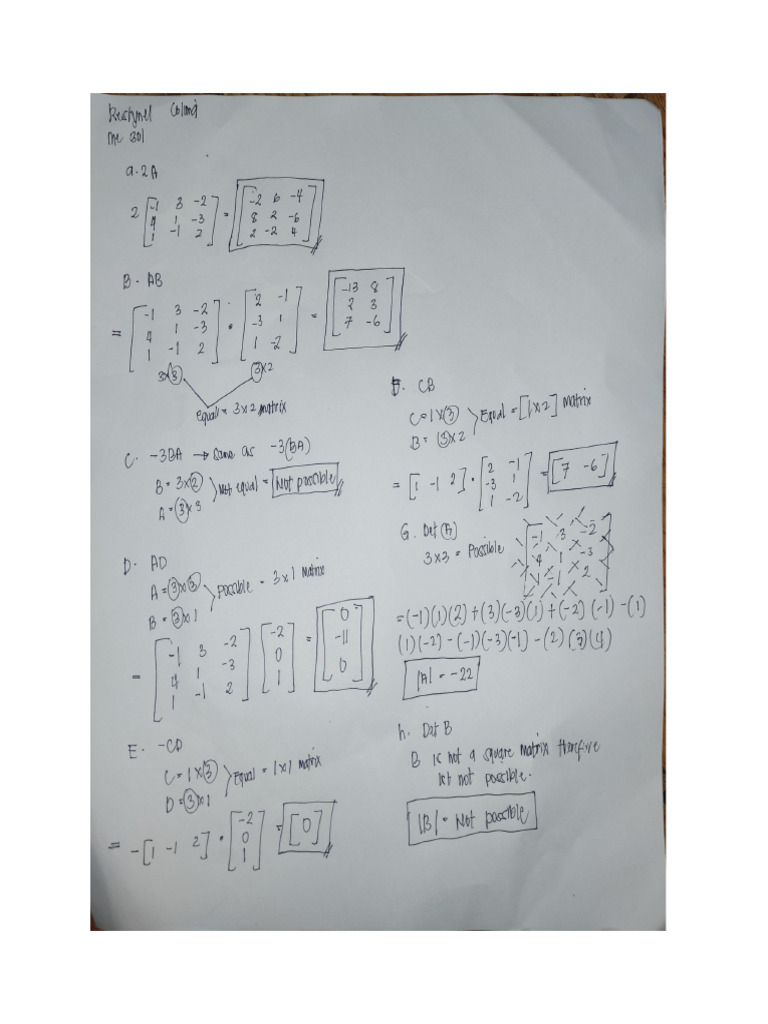 me 301
a. 2A
2 [-1 3 -2
4 1 -3
1 -1 2] = [-2 6 -4
8 2 -6
2 -2 4]
B. AB
= [-1 3 -2
4 1 -3
1 -1 2] • [2 -1
-3 1
1 -2] = [-13 8
2 3
7 -6]
3x3 3x2
equal = 3x2 matrix
C. -3BA → Same as -3(BA)
B = 3x2
A = 3x3
Not equal = Not possible
D. AD
A = 3x3
B = 3x1
possible = 3x1 Matrix
= [-1 3 -2
4 1 -3
1 -1 2] [-2
0
1] = [0
-11
0]
E. -CD
C = 1x3
D = 3x1
Equal = 1x1 matrix
= -[1 -1 2] • [-2
0
1] = [0]
CB
C = 1x3
B = 3x2
Equal = [1x2] Matrix
= [1 -1 2] • [2 -1
-3 1
1 -2] = [7 -6]
G. Det
3x3 = Possible [-1 3 -2
4 1 -3
1 -1 2]
= (-1)(1)(2) + (3)(-3)(1) + (-2) (-1) - (1)
(1)(-2) - (-1)(-3)(-1) - (2)(3)(4)
|A| = -22
h. Det B
B is not a square matrix therefore
not possible.
|B| = Not possible